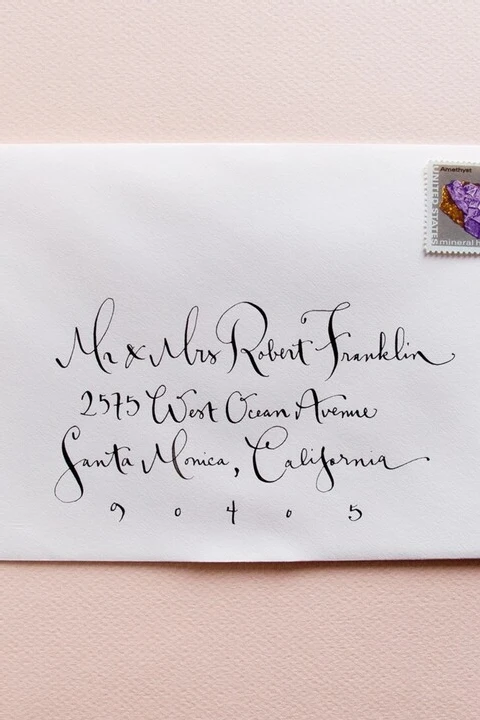 Amethyst
UNITED STATES
mineral h
Mr & Mrs Robert Franklin
2575 West Ocean Avenue
Santa Monica, California
9 0 4 0 5